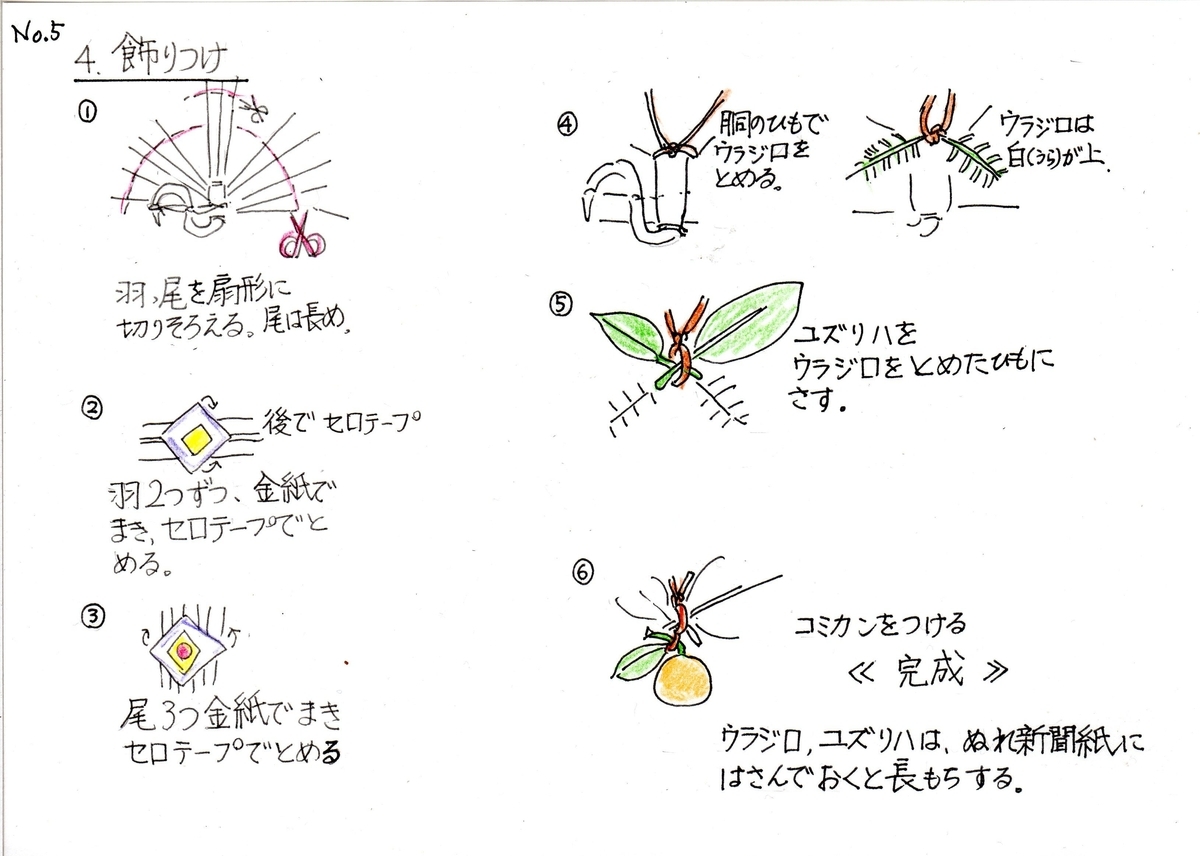 No.5
4. 飾りつけ
①
羽、尾を扇形に
切りそろえる。尾は長め。
②
後でセロテープ
羽2つずつ、金紙で
まき、セロテープでと
める。
③
尾3つ金紙でまき
セロテープでとめる
④
胴のひもで
ウラジロを
とめる。
ウラジロは
白(うら)が上.
⑤
ユズリハを
ウラジロをとめたひもに
さす。
⑥
コミカンをつける
≪ 完成 ≫
ウラジロ,ユズリハは、ぬれ新聞紙に
はさんでおくと長もちする。